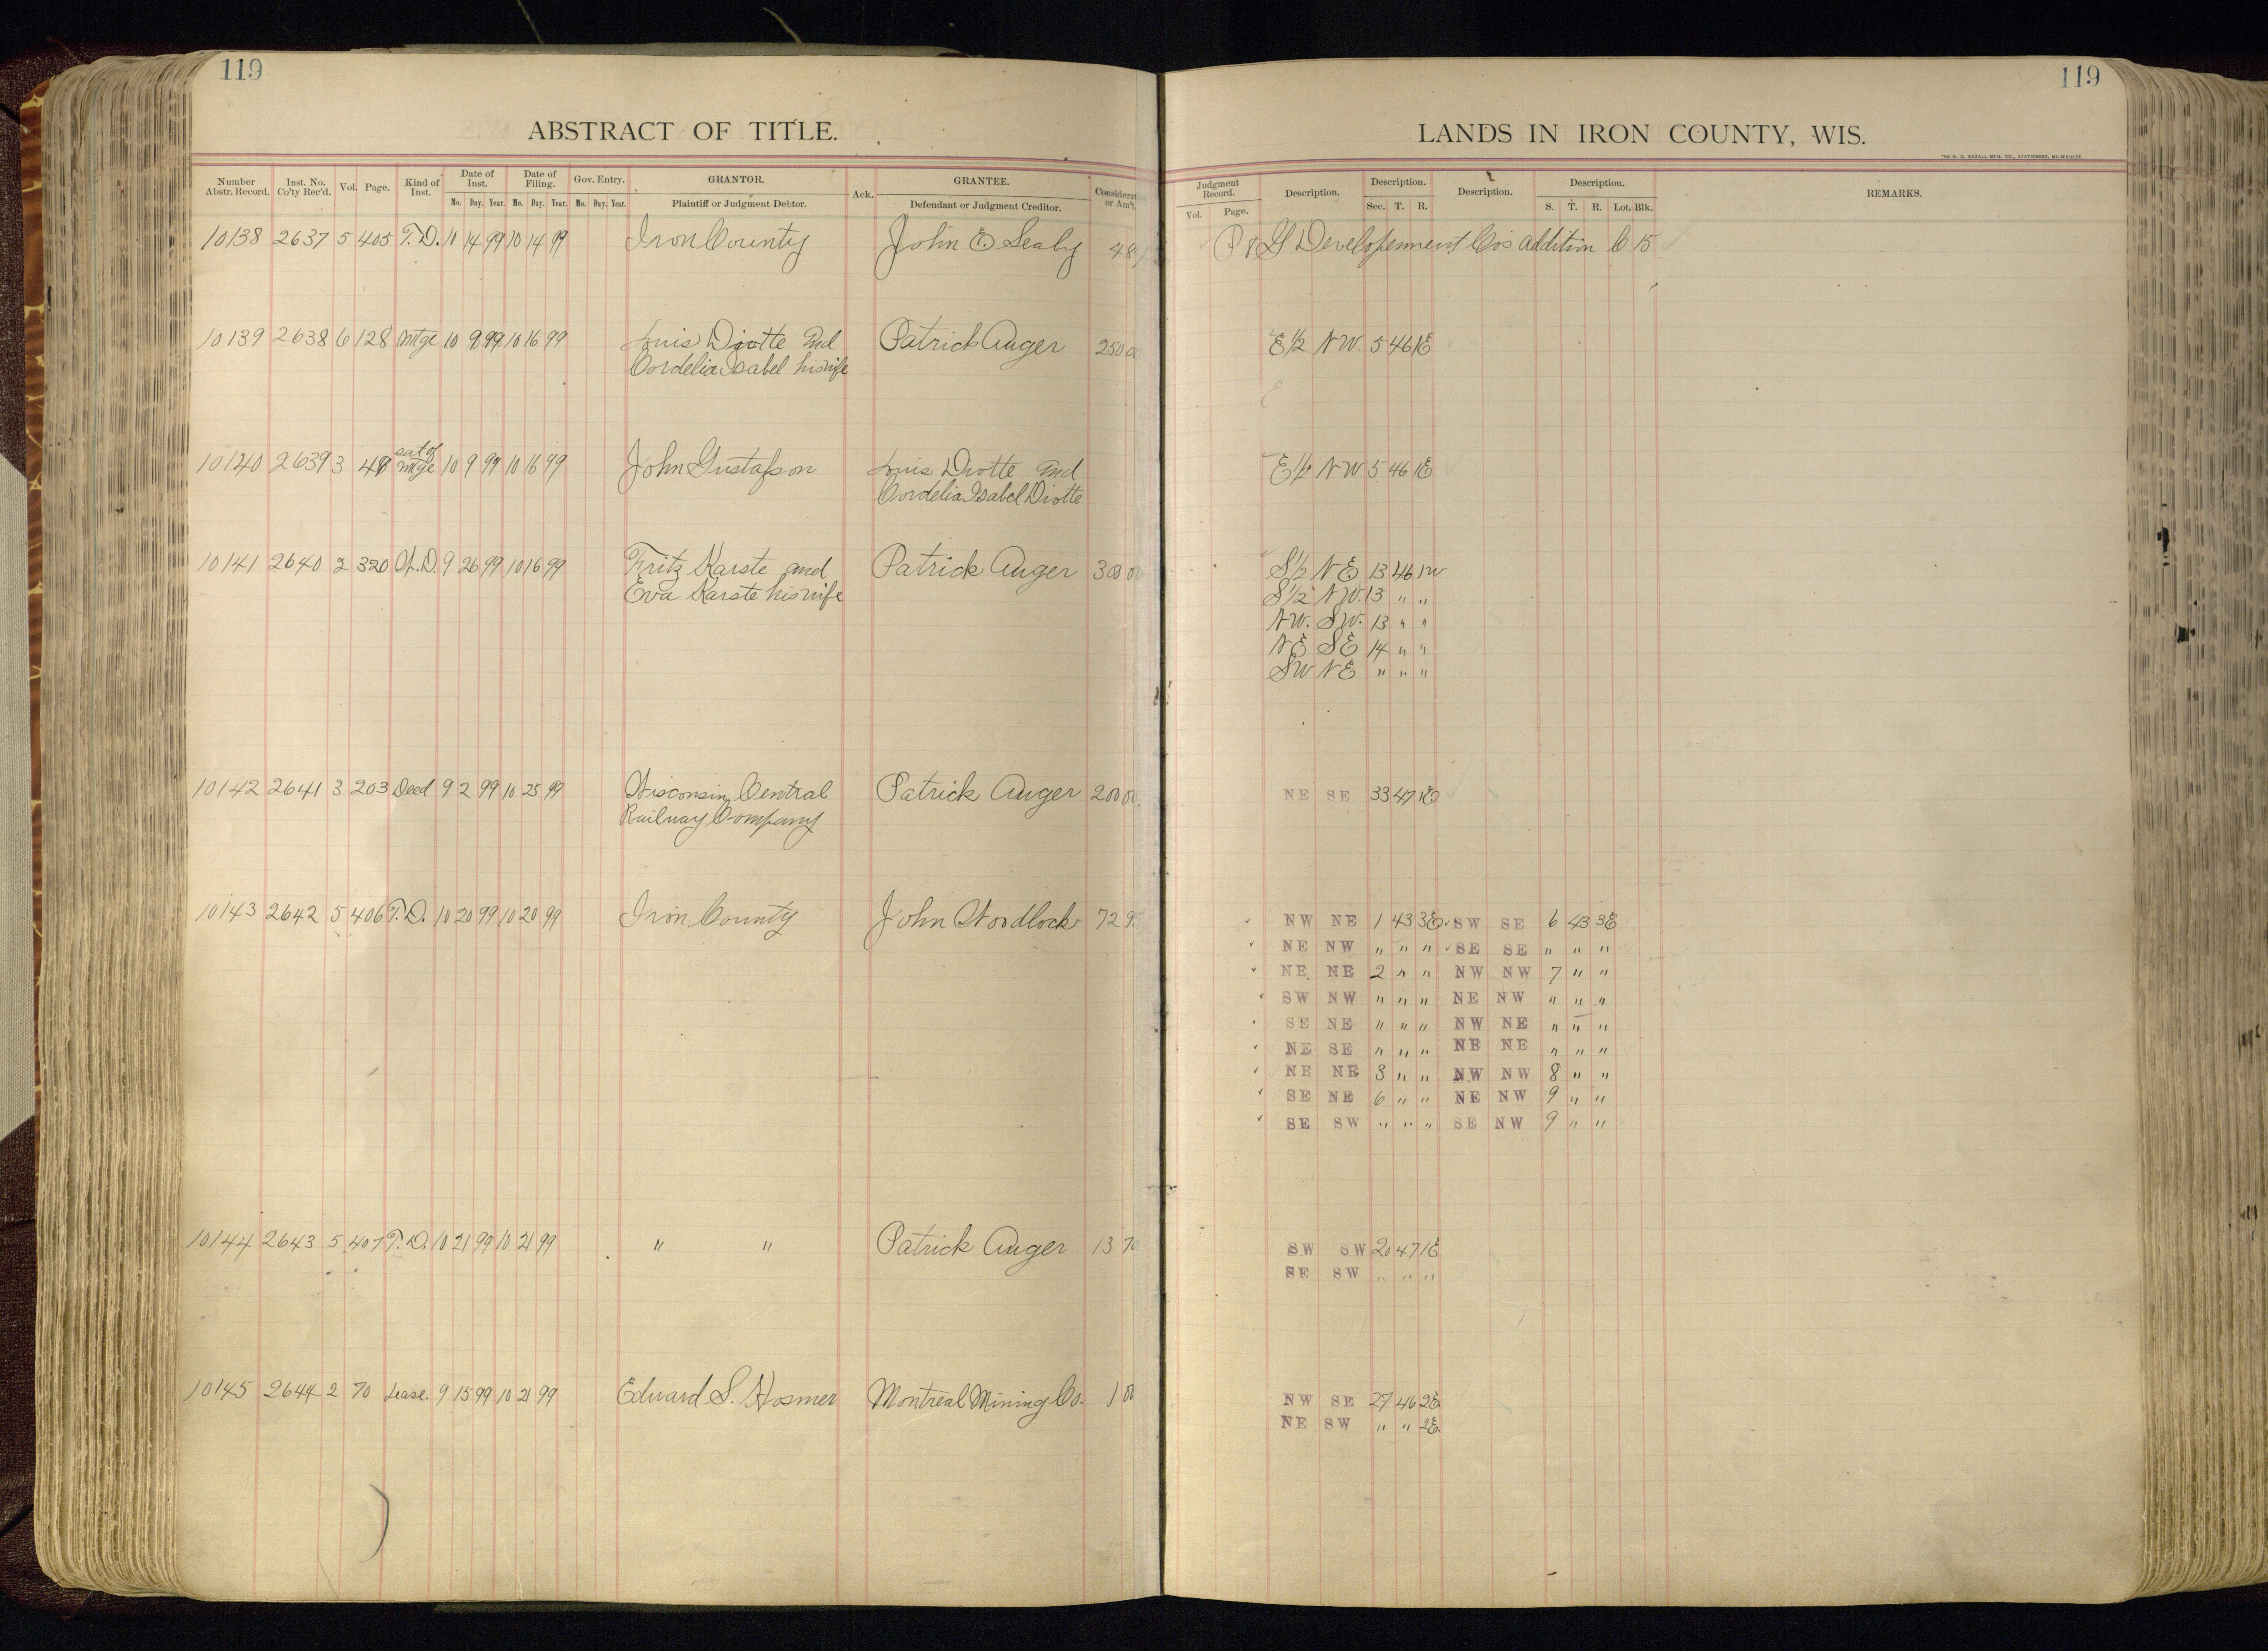 119
119
ABSTRACT OF TITLE.
LANDS IN IRON COUNTY, WIS.
THE H. G. RAZALL MFG. CO., STATIONERS, MILWAUKEE.
Number Abstr. Record. Inst. No. Co'ty Rec'd. Vol. Page. Kind of Inst. Date of Inst. Mo. Day. Year. Date of Filing. Mo. Day. Year. Gov. Entry. Mo. Day. Year. GRANTOR. Plaintiff or Judgment Debtor. Ack. GRANTEE. Defendant or Judgment Creditor. Considerat or Am't.
Judgment Record. Vol. Page. Description. Description. Sec. T. R. Description. Description. S. T. R. Lot. Blk. REMARKS.
10138 2637 5 405 T.D. 10 14 99 10 14 99 Iron County John E Sealy 48 Developement Co's addition 6 15
10139 2638 6 128 Mtge 10 9 99 10 16 99 Luis Diotte and Patrick Auger 250 00 E 1/2 NW. 5 46 1E
Cordelia Isabel his wife
sat of
10140 2639 3 48 Mtge 10 9 99 10 16 99 John Gustafson Luis Diotte and E 1/2 NW 5 46 1E
Cordelia Isabel Diotte
10141 2640 2 320 9 26 99 10 16 99 Fritz Karste and Patrick Auger 300 00 S 1/2 NE 13 46 1W
Eva Karste his wife S 1/2 NW. 13 " "
NW. SW. 13 " "
NE SE 14 " "
SW NE " " "
10142 2641 3 203 Deed 9 2 99 10 25 99 Wisconsin Central Patrick Auger 200 00 NE SE 33 47 1E
Railway Company
10143 2642 5 406 T.D. 10 20 99 10 20 99 Iron County John Woodlock 72 9 NW NE 1 43 3E SW SE 6 43 3E
NE NW " " " SE SE " " "
NE NE 2 " " NW NW 7 " "
SW NW " " " NE NW " " "
SE NE " " " NW NE " " "
NE SE " " " NE NE " " "
NE NE 3 " " NW NW 8 " "
SE NE 6 " " NE NW 9 " "
SE SW " " " SE NW 9 " "
10144 2643 5 407 T.D. 10 21 99 10 21 99 " " Patrick Auger 13 70 SW SW 20 47 1E
SE SW " " "
10145 2644 2 70 Lease. 9 15 99 10 21 99 Edward S. Hosmer Montreal Mining Co. 1 00 NW SE 27 46 2E
NE SW " " 2E